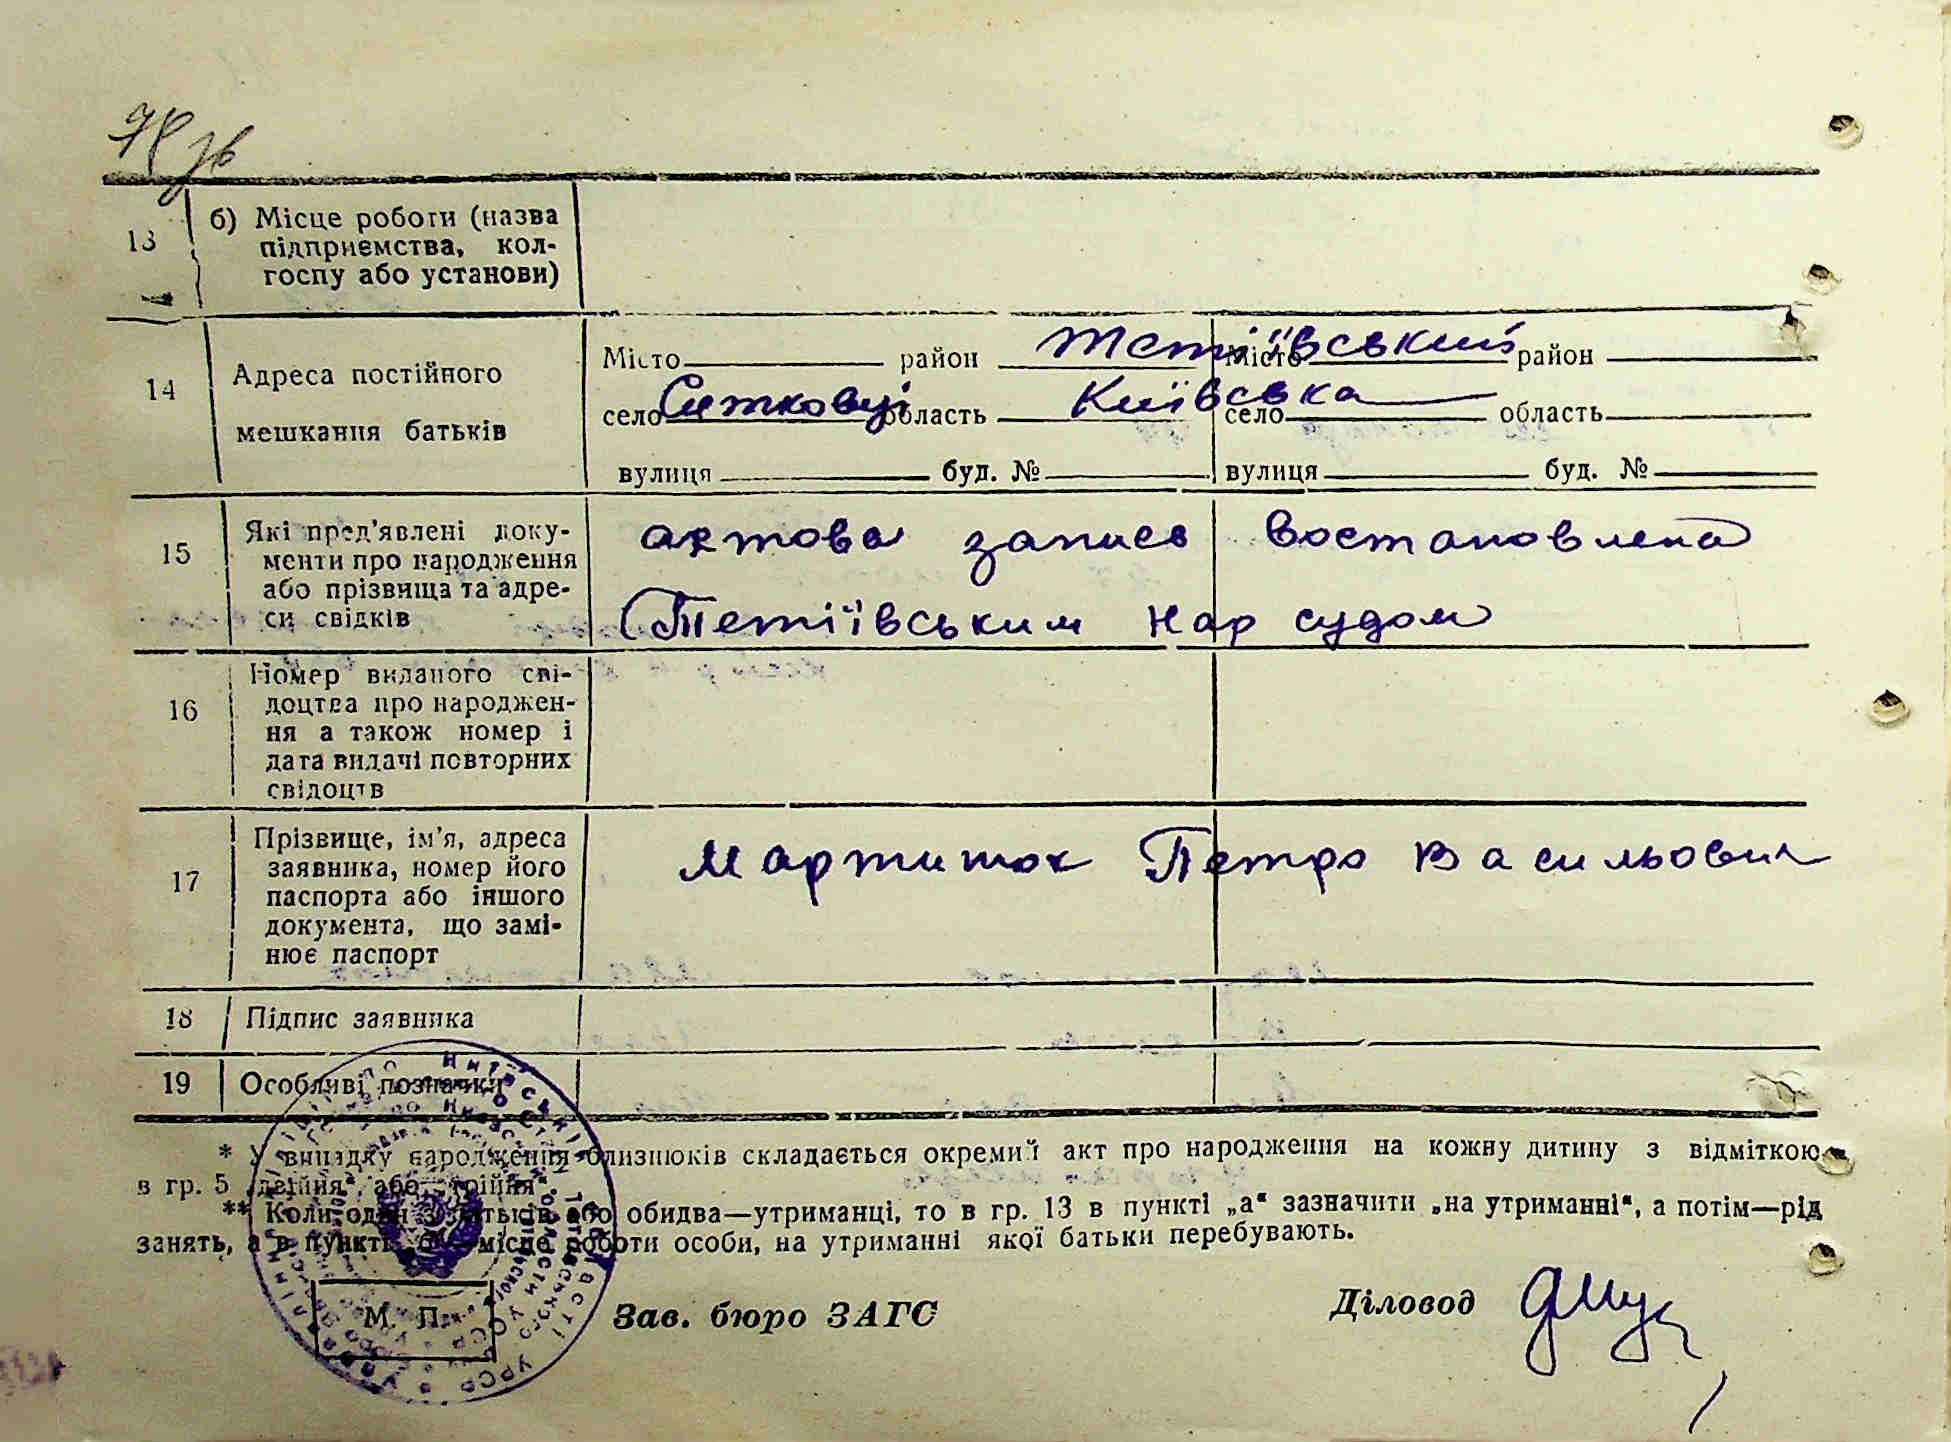 13 б) Місце роботи (назва
підприємства, кол-
госпу або установи)
14 Адреса постійного
мешкання батьків
Місто район Тетіївський Місто район
село Ситковці область Київська село область
вулиця буд. № вулиця буд. №
15 Які пред'явлені доку-
менти про народження
або прізвища та адре-
си свідків
актова запись востановлена
Тетіївським нар судом
16 Номер виданого сві-
доцтва про народжен-
ня а також номер і
дата видачі повторних
свідоцтв
17 Прізвище, ім'я, адреса
заявника, номер його
паспорта або іншого
документа, що замі-
нює паспорт
Петро Васильович
18 Підпис заявника
19 Особливі позначки
* У випадку народження близнюків складається окремий акт про народження на кожну дитину з відміткою
в гр. 5 „двійня“ або „трійня“
** Коли один з батьків або обидва—утриманці, то в гр. 13 в пункті „а“ зазначити „на утриманні“, а потім—рід
занять, а в пункті „б“ місце роботи особи, на утриманні якої батьки перебувають.
М. П.
Зав. бюро ЗАГС Діловод